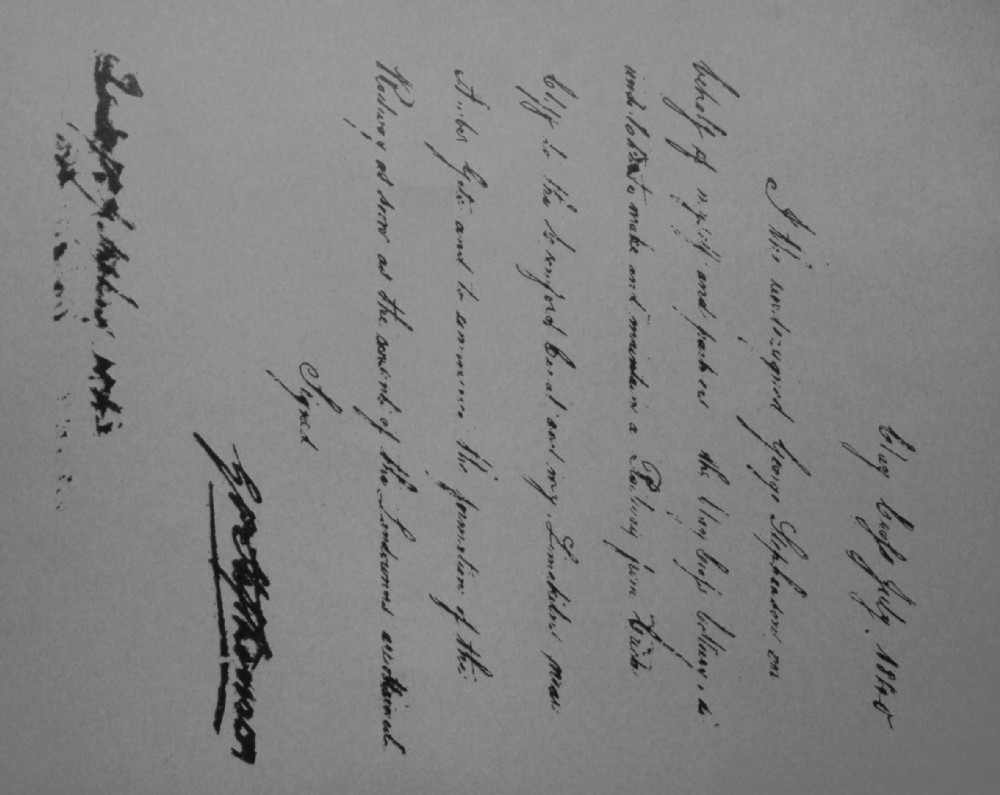 Clay Cross July. 1840
I the undersigned George Stephenson on
behalf of myself and partners the Clay Cross Colliery, do
undertake to make and maintain a Railway from Crich
Cliff to the Cromford Canal and my Limekilns near
Amber Gate and to commence the formation of the
Railway as soon as the consent of the Landowners ascertained.
Signed
Geo Stephenson